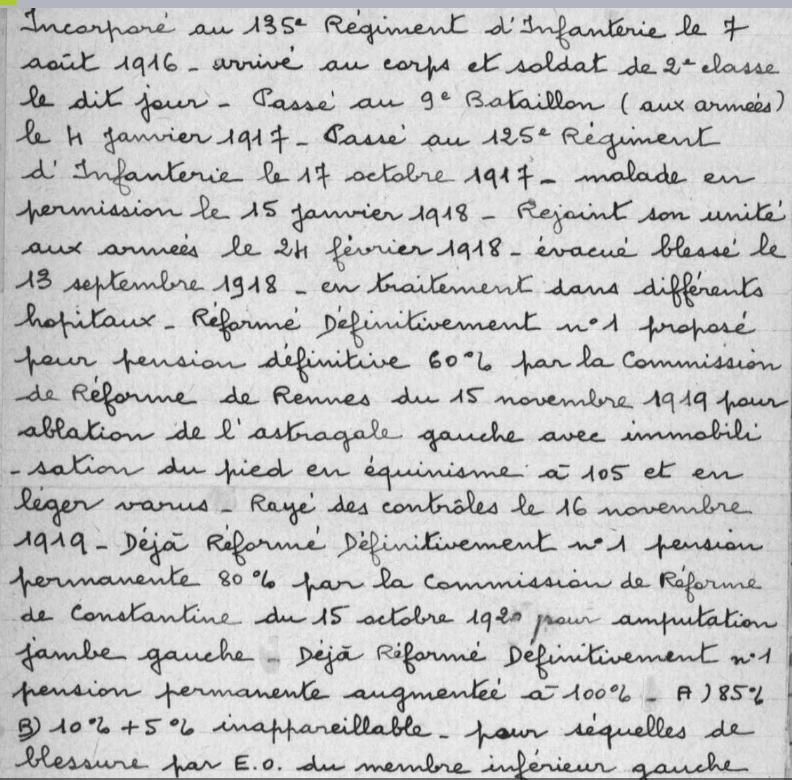 Incorporé au 135e Régiment d'Infanterie le 7
août 1916 - arrivé au corps et soldat de 2e classe
le dit jour - Passé au 9e Bataillon (aux armeés)
le 4 Janvier 1917 - Passé au 125e Régiment
d'Infanterie le 17 octobre 1917 - malade en
permission le 15 Janvier 1918 - Rejoint son unité
aux armeés le 24 février 1918 - évacué blessé le
13 septembre 1918 - en traitement dans différents
hopitaux - Réformé Définitivement n°1 proposé
pour pension définitive 60% par la Commission
de Réforme de Rennes du 15 novembre 1919 pour
ablation de l'astragale gauche avec immobili
-sation du pied en équinisme à 105 et en
léger varus - Rayé des contrôles le 16 novembre
1919 - Déjà Réformé Définitivement n°1 pension
permanente 80% par la Commission de Réforme
de Constantine du 15 octobre 1920 pour amputation
jambe gauche - Déjà Réformé Définitivement n°1
pension permanente augmenteé à 100% - A) 85%
B) 10% + 5% inappareillable - pour séquelles de
blessure par E.O. du membre inférieur gauche